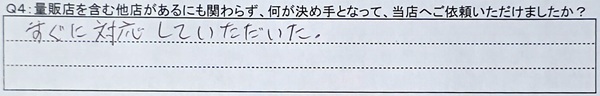 Q4:量販店を含む他店があるにも関わらず、何が決め手となって、当店へご依頼いただけましたか？
すぐに対応していただいた。